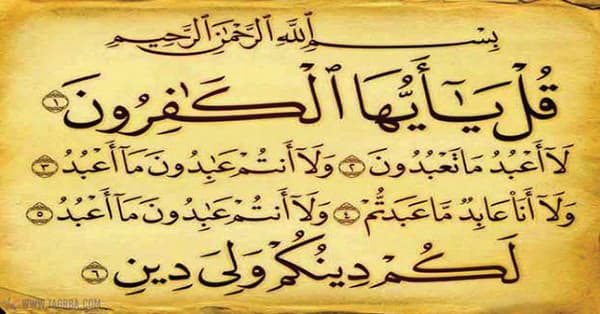 بِسْمِ ٱللَّهِ ٱلرَّحْمَٰنِ ٱلرَّحِيمِ
قُلْ يَٰٓأَيُّهَا ٱلْكَٰفِرُونَ ١
لَآ أَعْبُدُ مَا تَعْبُدُونَ ٢ وَلَآ أَنتُمْ عَٰبِدُونَ مَآ أَعْبُدُ ٣
وَلَآ أَنَا۠ عَابِدٌ مَّا عَبَدتُّمْ ٤ وَلَآ أَنتُمْ عَٰبِدُونَ مَآ أَعْبُدُ ٥
لَكُمْ دِينُكُمْ وَلِىَ دِينِ ٦
WWW.IAGRBA.COM